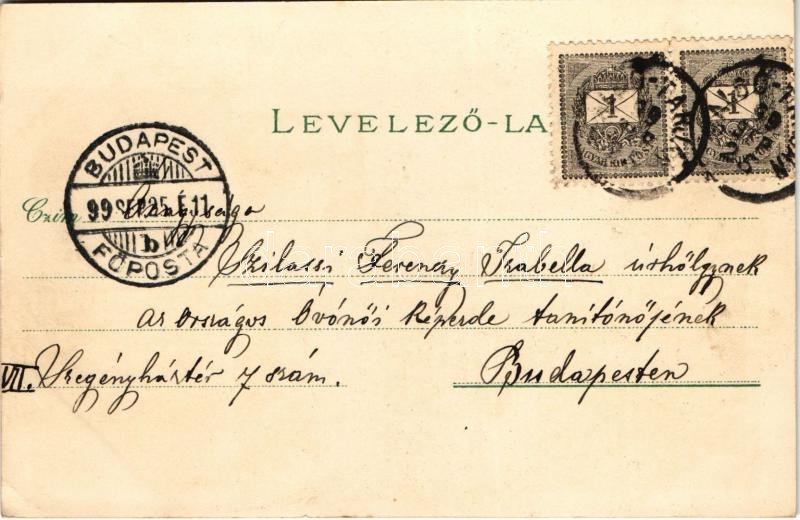 LEVELEZŐ-LA
1
1
BUDAPEST
99 SEP 25 É 11
b
FŐPOSTA
Czim
Nagysága
Szilassi Ferenczy Izabella úrhölgynek
az országos Óvónői képezde tanítónőjének
VII. Szegényháztér 7 szám.
Budapesten